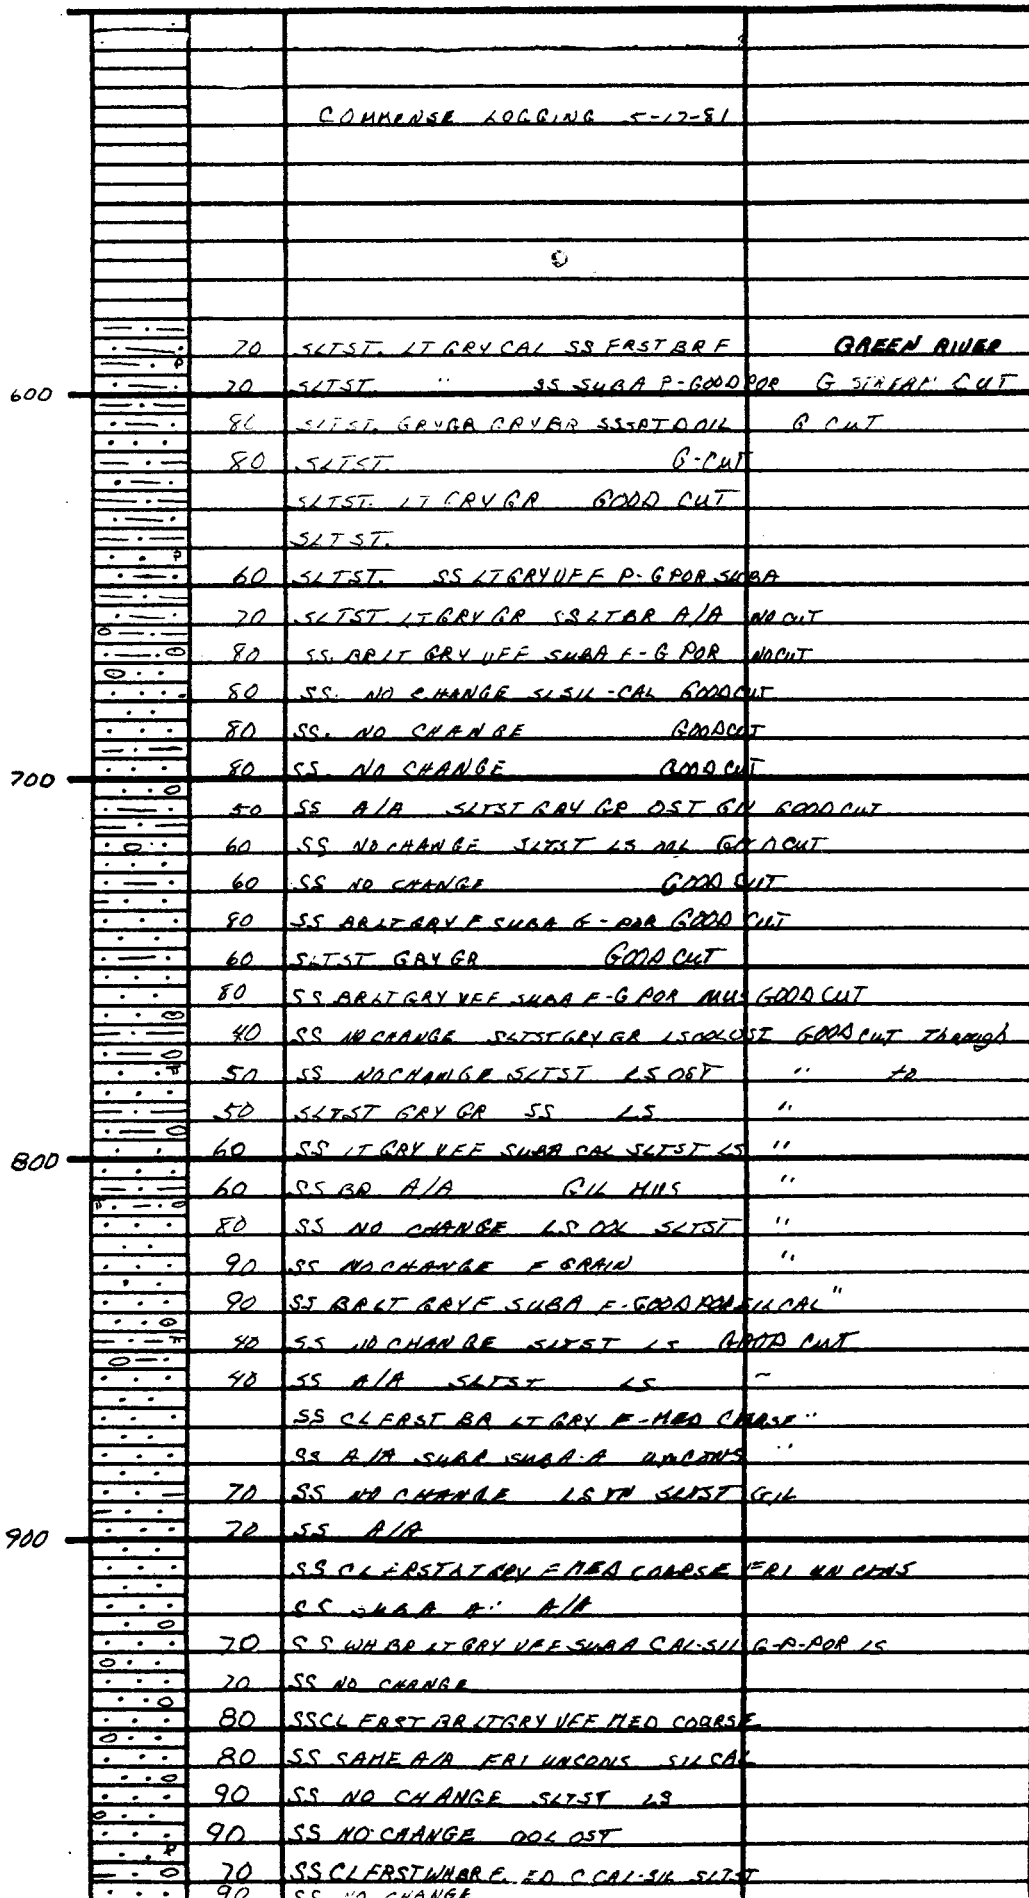 COMMENSE LOGGING 5-17-81
70 SLTST. LT GRY CAL SS FRST BR F GREEN RIVER
600
70 SLTST. " SS SUBA P-GOOD POR G STREAM CUT
80 SLTST. GRYGR GRYBR SS SATD OIL G CUT
80 SLTST. G-CUT
SLTST. LT GRY GR GOOD CUT
SLTST.
60 SLTST. SS LT GRY VFF P-G POR SUBA
70 SLTST. LT GRY GR SS LT BR A/A NO CUT
80 SS. BR LT GRY VFF SUBA F-G POR NO CUT
80 SS. NO CHANGE SLSIL-CAL GOOD CUT
80 SS. NO CHANGE GOOD CUT
80 SS. NO CHANGE GOOD CUT
700
50 SS A/A SLTST GRY GR OST GN GOOD CUT
60 SS NO CHANGE SLTST LS OOL GOOD CUT
60 SS NO CHANGE GOOD CUT
80 SS BR LT GRY F SUBA G-POR GOOD CUT
60 SLTST GRY GR GOOD CUT
80 SS BR LT GRY VFF SUBA F-G POR MUS GOOD CUT
40 SS NO CHANGE SLTST GRY GR LS OOL OST GOOD CUT Through
50 SS NO CHANGE SLTST LS OST " to
50 SLTST GRY GR SS LS "
800
60 SS LT GRY VFF SUBA CAL SLTST LS "
60 SS BR A/A GIL MUS "
80 SS NO CHANGE LS OOL SLTST "
90 SS NO CHANGE F GRAIN "
90 SS BR LT GRY F SUBA F-GOOD POR SIL CAL "
40 SS NO CHANGE SLTST LS GOOD CUT
40 SS A/A SLTST LS ~
SS CL FRST BR LT GRY F-MED COARSE "
SS A/A SUBR SUBA-A UNCONS "
70 SS NO CHANGE LS SLTST GIL
900
70 SS A/A
SS CL FRST LT GRY F MED COARSE FRI UN CONS
SS SUBA A " A/A
70 SS WH BR LT GRY VFF SUBA CAL-SIL G-P-POR LS
70 SS NO CHANGE
80 SS CL FRST BR LT GRY VFF MED COARSE
80 SS SAME A/A FRI UNCONS SIL CAL
90 SS NO CHANGE SLTST LS
90 SS NO CHANGE OOL OST
70 SS CL FRST WH BR F ED C CAL-SIL SLTST
90 SS NO CHANGE